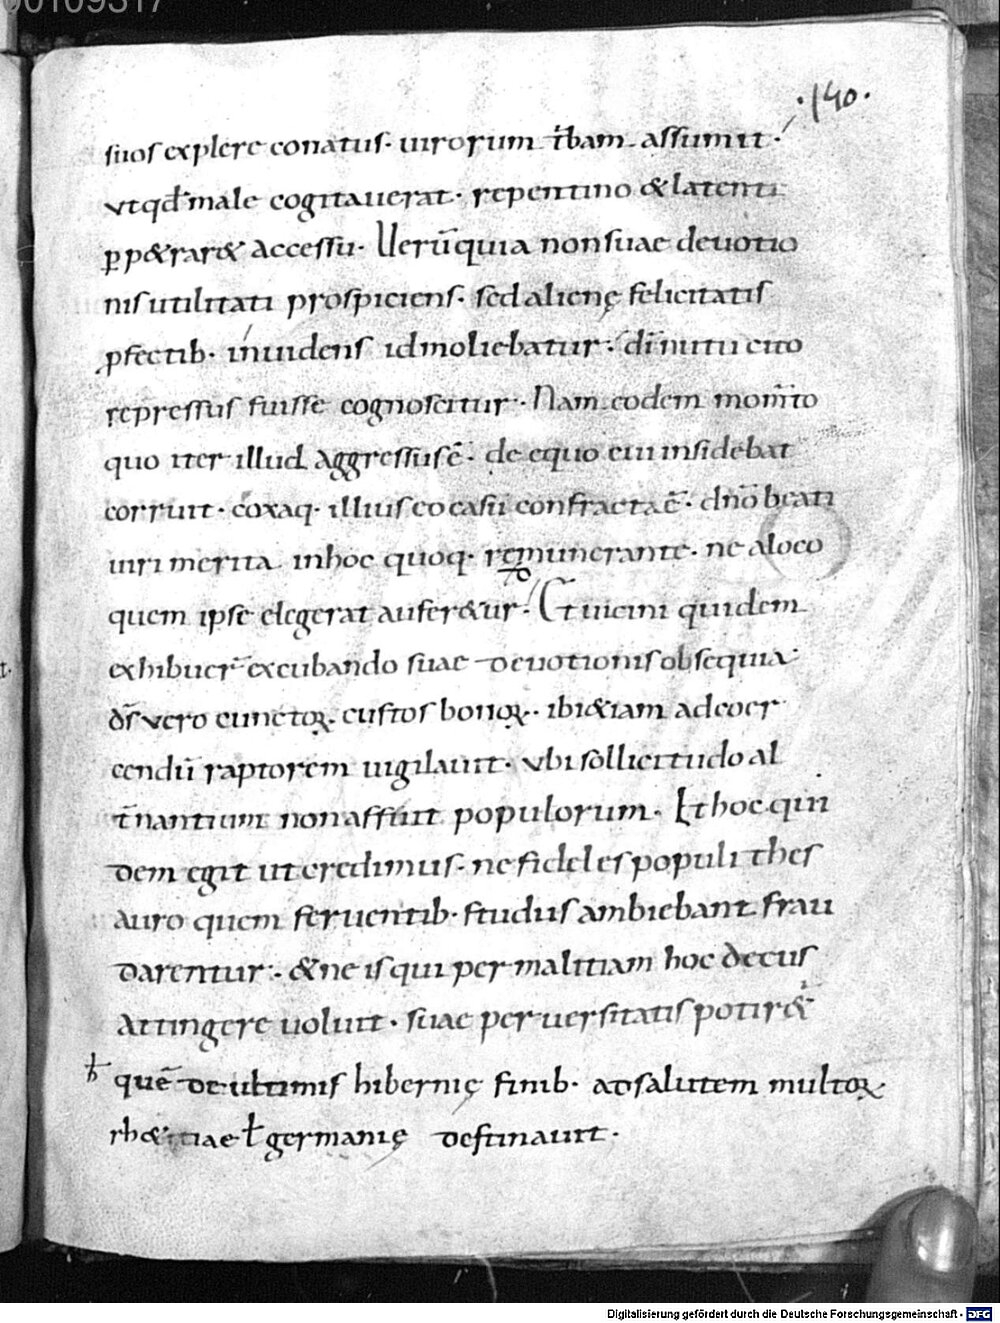 00109317
·140·
suos explere conatus· uirorum t̄bam assumit·
vtqđ male cogitauerat· repentino &latenti
ꝑp&rar& accessu· Ueru̅quia nonsuae deuotio
nisutilitati prospiciens· sedalienę felicitatis
ꝓfectib· inuidens idmoliebatur· di̅ nutu cito
repressus fuisse cognoscitur· Nam eodem mom̅to
quo iter illud aggressusē· de equo cui insidebat
corruit· coxaq· illius eo casu confractaē· dn̅o beati
uiri merita inhoc quoq· remunerante· ne aloco
quem ipse elegerat aufer&ur· Et uicini quidem
exhibuer̅ excubando suae deuotionisobsequia·
ds̅ vero cunctoꝝ· custos bonoꝝ· ibi&iam adcoer
cendū raptorem uigilauit· vbi sollicitudo al
t̅nantium nonaffuit populorum· Et hoc qui
dem egit ut credimus· ne fideles populi thes
auro quem feruentib· studiis ambiebant frau
darentur· &ne is qui per malitiam hoc decus
attingere uoluit· suae peruersitatis potir&
quē de ultimis hibernię finib· adsalutem multoꝝ
rh&iae ł germanię destinauit·
Digitalisierung gefördert durch die Deutsche Forschungsgemeinschaft - DFG